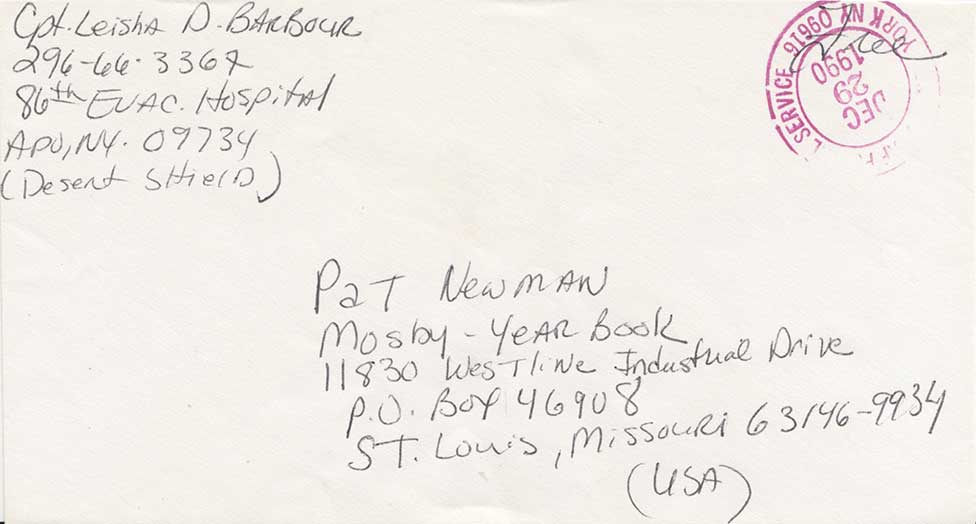 Cpt. Leisha D. Barbour
86th Evac. Hospital
APO, NY. 09734
(Desert Shield)
Free
SERVICE 09616 YORK NY
DEC
29
1990
Pat Newman
Mosby - Year Book
11830 Westline Industrial Drive
P.O. Box 46908
St. Louis, Missouri 63146-9934
(USA)